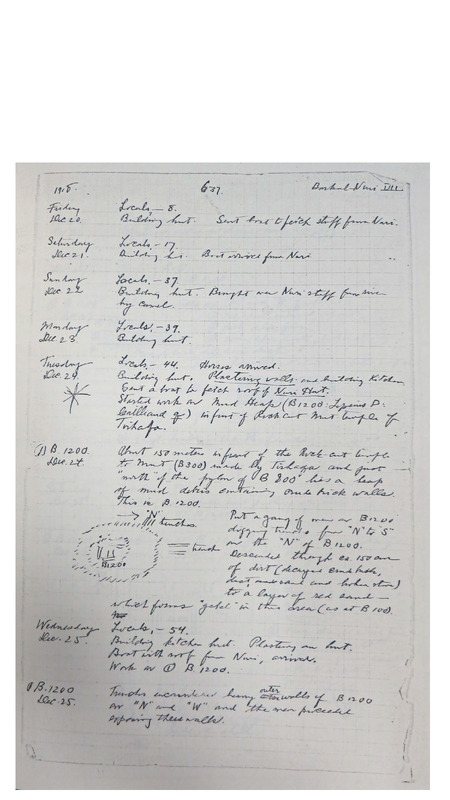 1918. 637. Barkal-Nuri VII.
Friday Locals - 8.
Dec 20. Building hut. Sent boat to fetch stuff from Nuri.
Saturday Locals - 17.
Dec 21. Building hut. Boat arrived from Nuri
Sunday Locals. - 37
Dec 22 Building hut. Brought over Nuri stuff
by camel.
Monday Locals. - 39.
Dec 23 Building hut.
Tuesday Locals. - 44. Horses arrived.
Dec 24. Building hut. Plastering walls and building Kitchen
Sent a boat to fetch roof of Nuri Hut.
Started work on Mud Heap (B1200: Lepsius D:
Cailliaud) in front of Rock cut Mut temple of
Tirhaqa.
1) B. 1200. About 150 meters in front of the Rock cut temple
Dec. 24. to Mut (B300) made by Tirhaqa and just
"north" of the pylon of B 800 is a heap
of mud debris containing crude brick walls.
This is B. 1200.
"N" trenches
trench
B1200
Put a gang of men on B1200
digging trenches from "N to S"
on the "N" of B1200.
Descended through ca. 150 cm
of dirt (decayed crude brick,
dust, and broken stone)
to a layer of red sand -
which forms "gebel" in this area (as at B 100.
Wednesday Locals, - 54.
Dec. 25. Building kitchen hut. Plastering on hut.
Boat with roof from Nuri, arrived.
Work on ① B. 1200.
1) B. 1200 Trenches encountered heavy outer walls of B 1200
Dec. 25. on "N" and "W" and the men proceeded
exposing these walls.